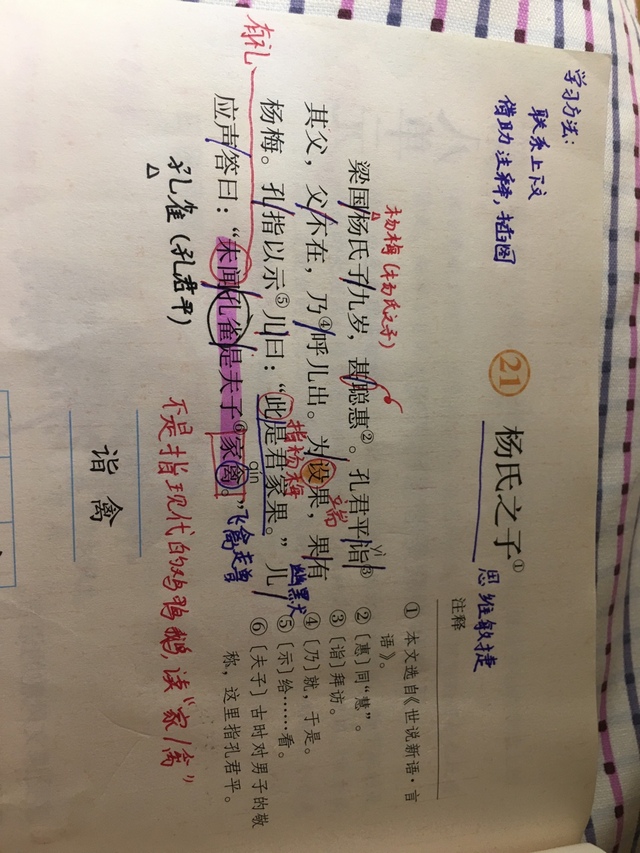 学习方法:
联系上下文
借助注释,插图
21 杨氏之子①
思维敏捷
杨梅(杨氏之子)
梁国/杨氏子/九岁,甚/聪惠②。孔君平/诣③
yì
其父,父/不在,乃④/呼儿出。为/设果,果/有
端
有礼
指杨梅
幽默
杨梅。孔/指以示⑤儿/曰:“此/是君家果。”儿/
应声/答曰:“未闻/孔雀/是夫子⑥家/禽。”
qín
飞禽走兽
孔雀(孔君平)
不是指现代的鸡鸭鹅,读“家/禽”
诣 禽
注释
① 本文选自《世说新语·言
语》。
② 〔惠〕同“慧”。
③ 〔诣〕拜访。
④ 〔乃〕就,于是。
⑤ 〔示〕给……看。
⑥ 〔夫子〕古时对男子的敬
称,这里指孔君平。